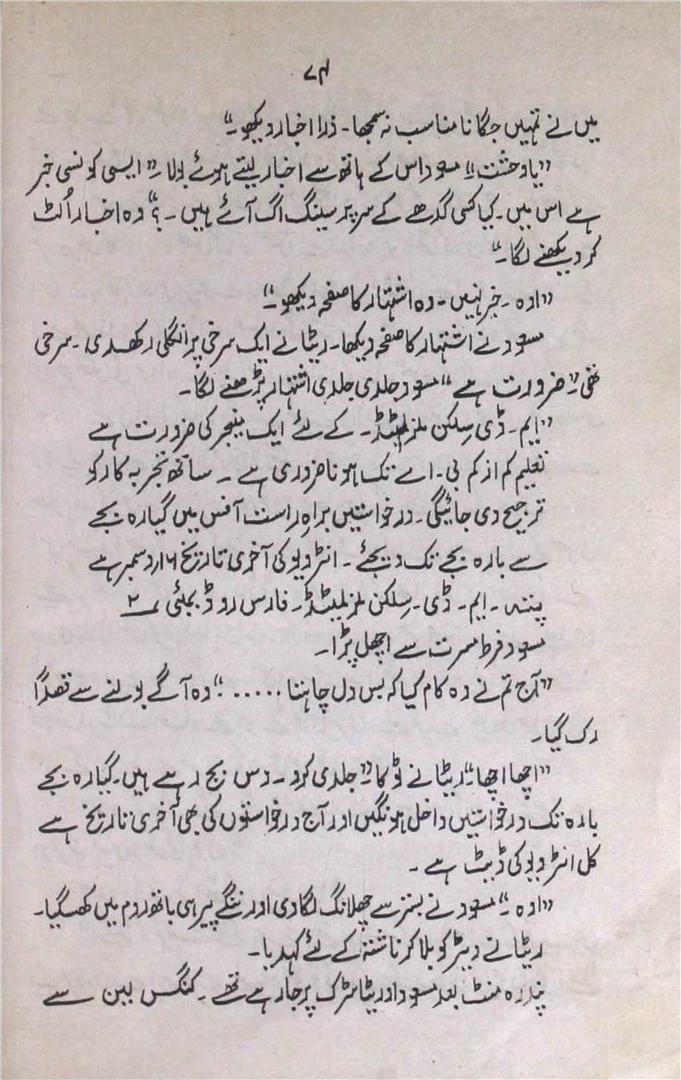 ۷۴
میں نے تمہیں جگانا مناسب نہ سمجھا۔ ذرا اخبار دیکھو۔"
"یا وحشت!" مسعود اس کے ہاتھ سے اخبار لیتے ہوئے بولا۔ "ایسی کونسی خبر
ہے اس میں۔ کیا کسی گدھے کے سر پر سینگ اگ آئے ہیں۔؟" وہ اخبار اُلٹ
کر دیکھنے لگا۔"
"اوہ۔ خبر نہیں۔ وہ اشتہار کا صفحہ دیکھو۔"
مسعود نے اشتہار کا صفحہ دیکھا۔ ریٹا نے ایک سرخی پر انگلی رکھدی۔ سرخی
تھی۔ "ضرورت ہے" مسعود جلدی جلدی اشتہار پڑھنے لگا۔
"ایم۔ ڈی سِلکن ملز لمیٹڈ۔ کے لئے ایک مینجر کی ضرورت ہے
تعلیم کم از کم بی۔ اے تک ہونا ضروری ہے۔ ساتھ تجربہ کار کو
ترجیح دی جائیگی۔ درخواستیں براہِ راست آفس میں گیارہ بجے
سے بارہ بجے تک دیجئے۔ انٹرویو کی آخری تاریخ ۱۶ دسمبر ہے
پتہ۔ ایم۔ ڈی۔ سِلکن ملز لمیٹڈ۔ فارس روڈ بمبئی ۲
مسعود فرط مسرت سے اچھل پڑا۔
"آج تم نے وہ کام کیا کہ بس دل چاہتا ......" وہ آگے بولنے سے قصداً
رک گیا۔
"اچھا اچھا" ریٹا نے ٹوکا "جلدی کرو۔ دس بج رہے ہیں۔ گیارہ بجے
بارہ تک درخواستیں داخل ہونگیں اور آج درخواستوں کی بھی آخری تاریخ ہے
کل انٹرویو کی ڈیٹ ہے۔
"اوہ۔" مسعود نے بستر سے چھلانگ لگا دی اور ننگے پیر ہی باتھ روم میں گھس گیا۔
ریٹا نے ویٹر کو بلا کر ناشتہ کے لئے کہدیا۔
پندرہ منٹ بعد مسعود اور ریٹا سڑک پر جا رہے تھے۔ کنگس لین سے